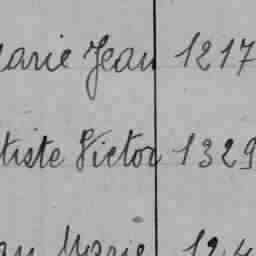 larie Jean 1217
tiste Victor 1329
an Marie 124